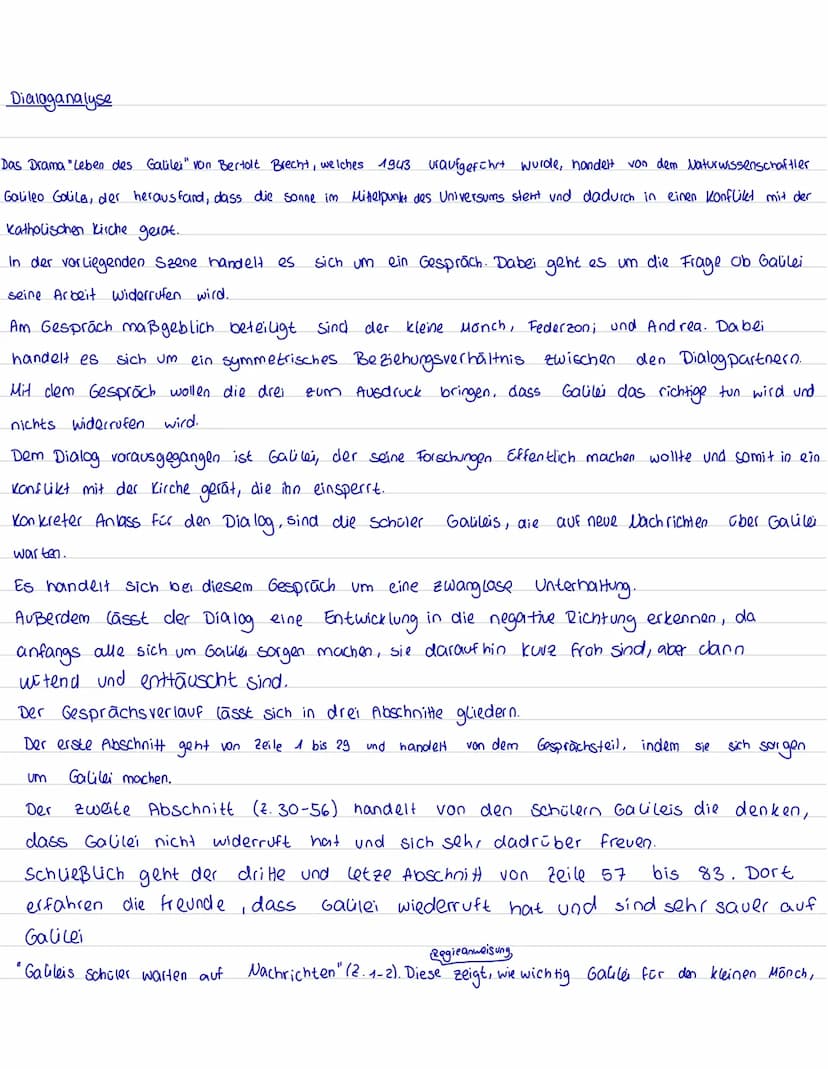 Dialoganalyse
Das Drama "Leben des Galilei" von Bertolt Brecht, welches 1943 uraufgeführt wurde, handelt von dem Naturwissenschaftler
Galileo Galile, der herausfand, dass die Sonne im Mittelpunkt des Universums steht und dadurch in einen Konflikt mit der
Katholischen Kirche gerät.
In der vorliegenden Szene handelt es sich um ein Gespräch. Dabei geht es um die Frage ob Galilei
seine Arbeit widerrufen wird.
Am Gespräch maßgeblich beteiligt sind der kleine Mönch, Federzoni und Andrea. Dabei
handelt es sich um ein symmetrisches Beziehungsverhältnis zwischen den Dialogpartnern.
Mit dem Gespräch wollen die drei zum Ausdruck bringen, dass Galilei das richtige tun wird und
nichts widerrufen wird.
Dem Dialog vorausgegangen ist Galilei, der seine Forschungen Öffentlich machen wollte und somit in ein
Konflikt mit der Kirche gerät, die ihn einsperrt.
Konkreter Anlass für den Dialog, sind die Schüler Galileis, die auf neue Nachrichten über Galilei
warten.
Es handelt sich bei diesem Gespräch um eine zwanglose Unterhaltung.
Außerdem lässt der Dialog eine Entwicklung in die negative Richtung erkennen, da
anfangs alle sich um Galilei sorgen machen, sie daraufhin kurz froh sind, aber dann
wütend und enttäuscht sind.
Der Gesprächsverlauf lässt sich in drei Abschnitte gliedern.
Der erste Abschnitt geht von Zeile 1 bis 29 und handelt von dem Gesprächsteil, indem sie sich sorgen
um Galilei machen.
Der zweite Abschnitt (Z. 30-56) handelt von den Schülern Galileis die denken,
dass Galilei nicht widerruft hat und sich sehr dadrüber freuen.
Schließlich geht der dritte und letze Abschnitt von Zeile 57 bis 83. Dort
erfahren die Freunde, dass Galilei wiederruft hat und sind sehr sauer auf
Galilei
Regieanweisung
"Galileis Schüler warten auf Nachrichten" (Z. 1-2). Diese zeigt, wie wichtig Galilei für den kleinen Mönch,